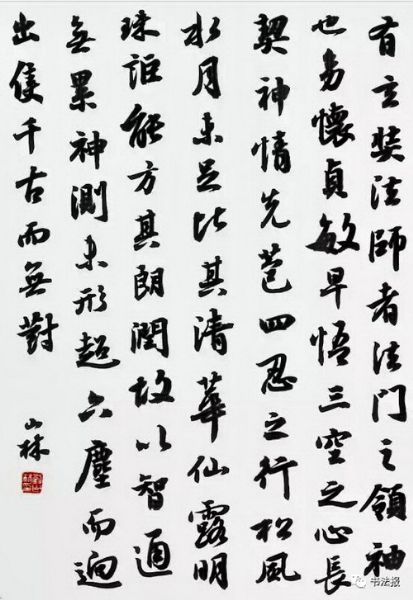 有玄奘法師者法門之領袖
也幼懷貞敏早悟三空之心長
契神情先苞四忍之行松風
水月未足比其清華仙露明
珠詎能方其朗潤故以智通
無累神測未形超六塵而迥
出隻千古而無對
山林
书法报